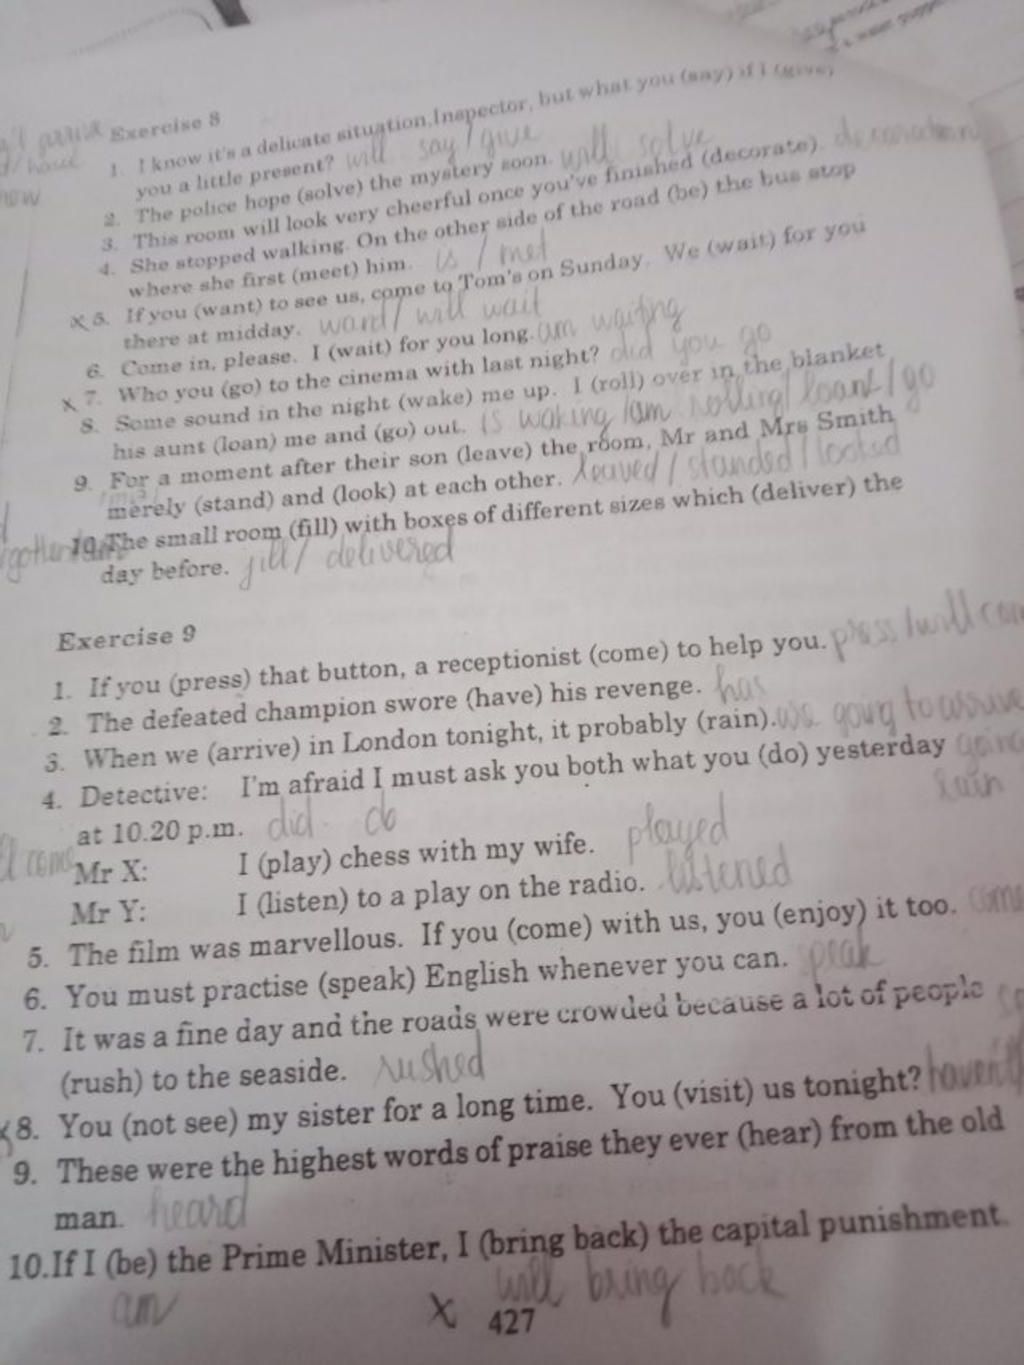 Exercise 8
1. I know it's a delicate situation, Inspector, but what you (say) if I (give)
you a little present? will say / give
2. The police hope (solve) the mystery soon. will solve
3. This room will look very cheerful once you've finished (decorate).
4. She stopped walking. On the other side of the road (be) the bus stop
where she first (meet) him. is / met
x 5. If you (want) to see us, come to Tom's on Sunday. We (wait) for you
there at midday. want / will wait
6. Come in, please. I (wait) for you long. am waiting
x 7. Who you (go) to the cinema with last night? did you go
8. Some sound in the night (wake) me up. I (roll) over in the blanket
his aunt (loan) me and (go) out. is waking / am rolling / loant / go
9. For a moment after their son (leave) the room, Mr and Mrs Smith
merely (stand) and (look) at each other. leaved / standed / looked
10. The small room (fill) with boxes of different sizes which (deliver) the
day before. fill / delivered
Exercise 9
1. If you (press) that button, a receptionist (come) to help you. press / will
2. The defeated champion swore (have) his revenge. has
3. When we (arrive) in London tonight, it probably (rain). going to
4. Detective: I'm afraid I must ask you both what you (do) yesterday
rain
at 10.20 p.m. did do
Mr X: I (play) chess with my wife. played
Mr Y: I (listen) to a play on the radio. listened
5. The film was marvellous. If you (come) with us, you (enjoy) it too.
6. You must practise (speak) English whenever you can. speak
7. It was a fine day and the roads were crowded because a lot of people
(rush) to the seaside. rushed
x 8. You (not see) my sister for a long time. You (visit) us tonight? haven't
9. These were the highest words of praise they ever (hear) from the old
man. heard
10. If I (be) the Prime Minister, I (bring back) the capital punishment.
am x will bring back
427